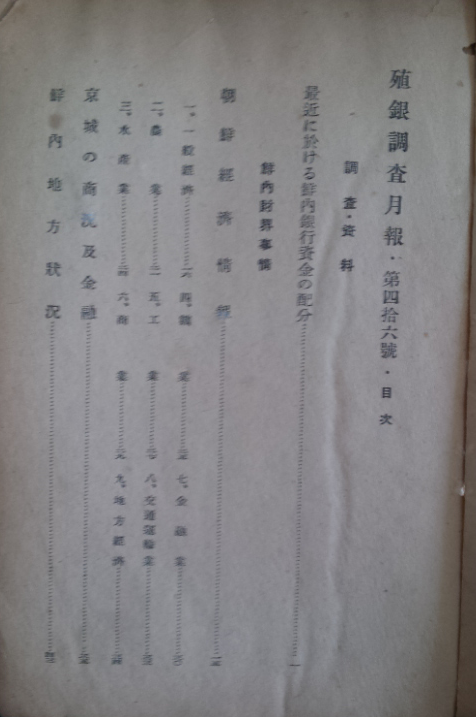 殖銀調査月報・第四拾六號・目次
調査・資料
最近に於ける鮮内銀行資金の配分……一
鮮内財界事情
朝鮮經濟情報
一、一般經濟
四、鑛業
七、金融業
二、農業
五、工業
八、交通運輸業
三、水産業
六、商業
九、地方經濟
京城の商況及金融
鮮內地方狀況